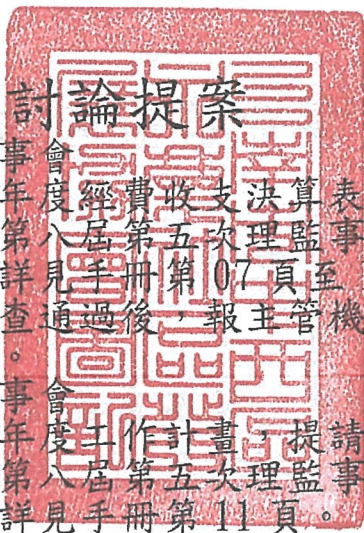 討論提案
事會
年度經費收支決算表
第八屆第五次理監事
詳見手冊第07頁至
查通過後,報主管機
。
事會
年度工作計畫,提請
第八屆第五次理監事
詳見手冊第11頁。